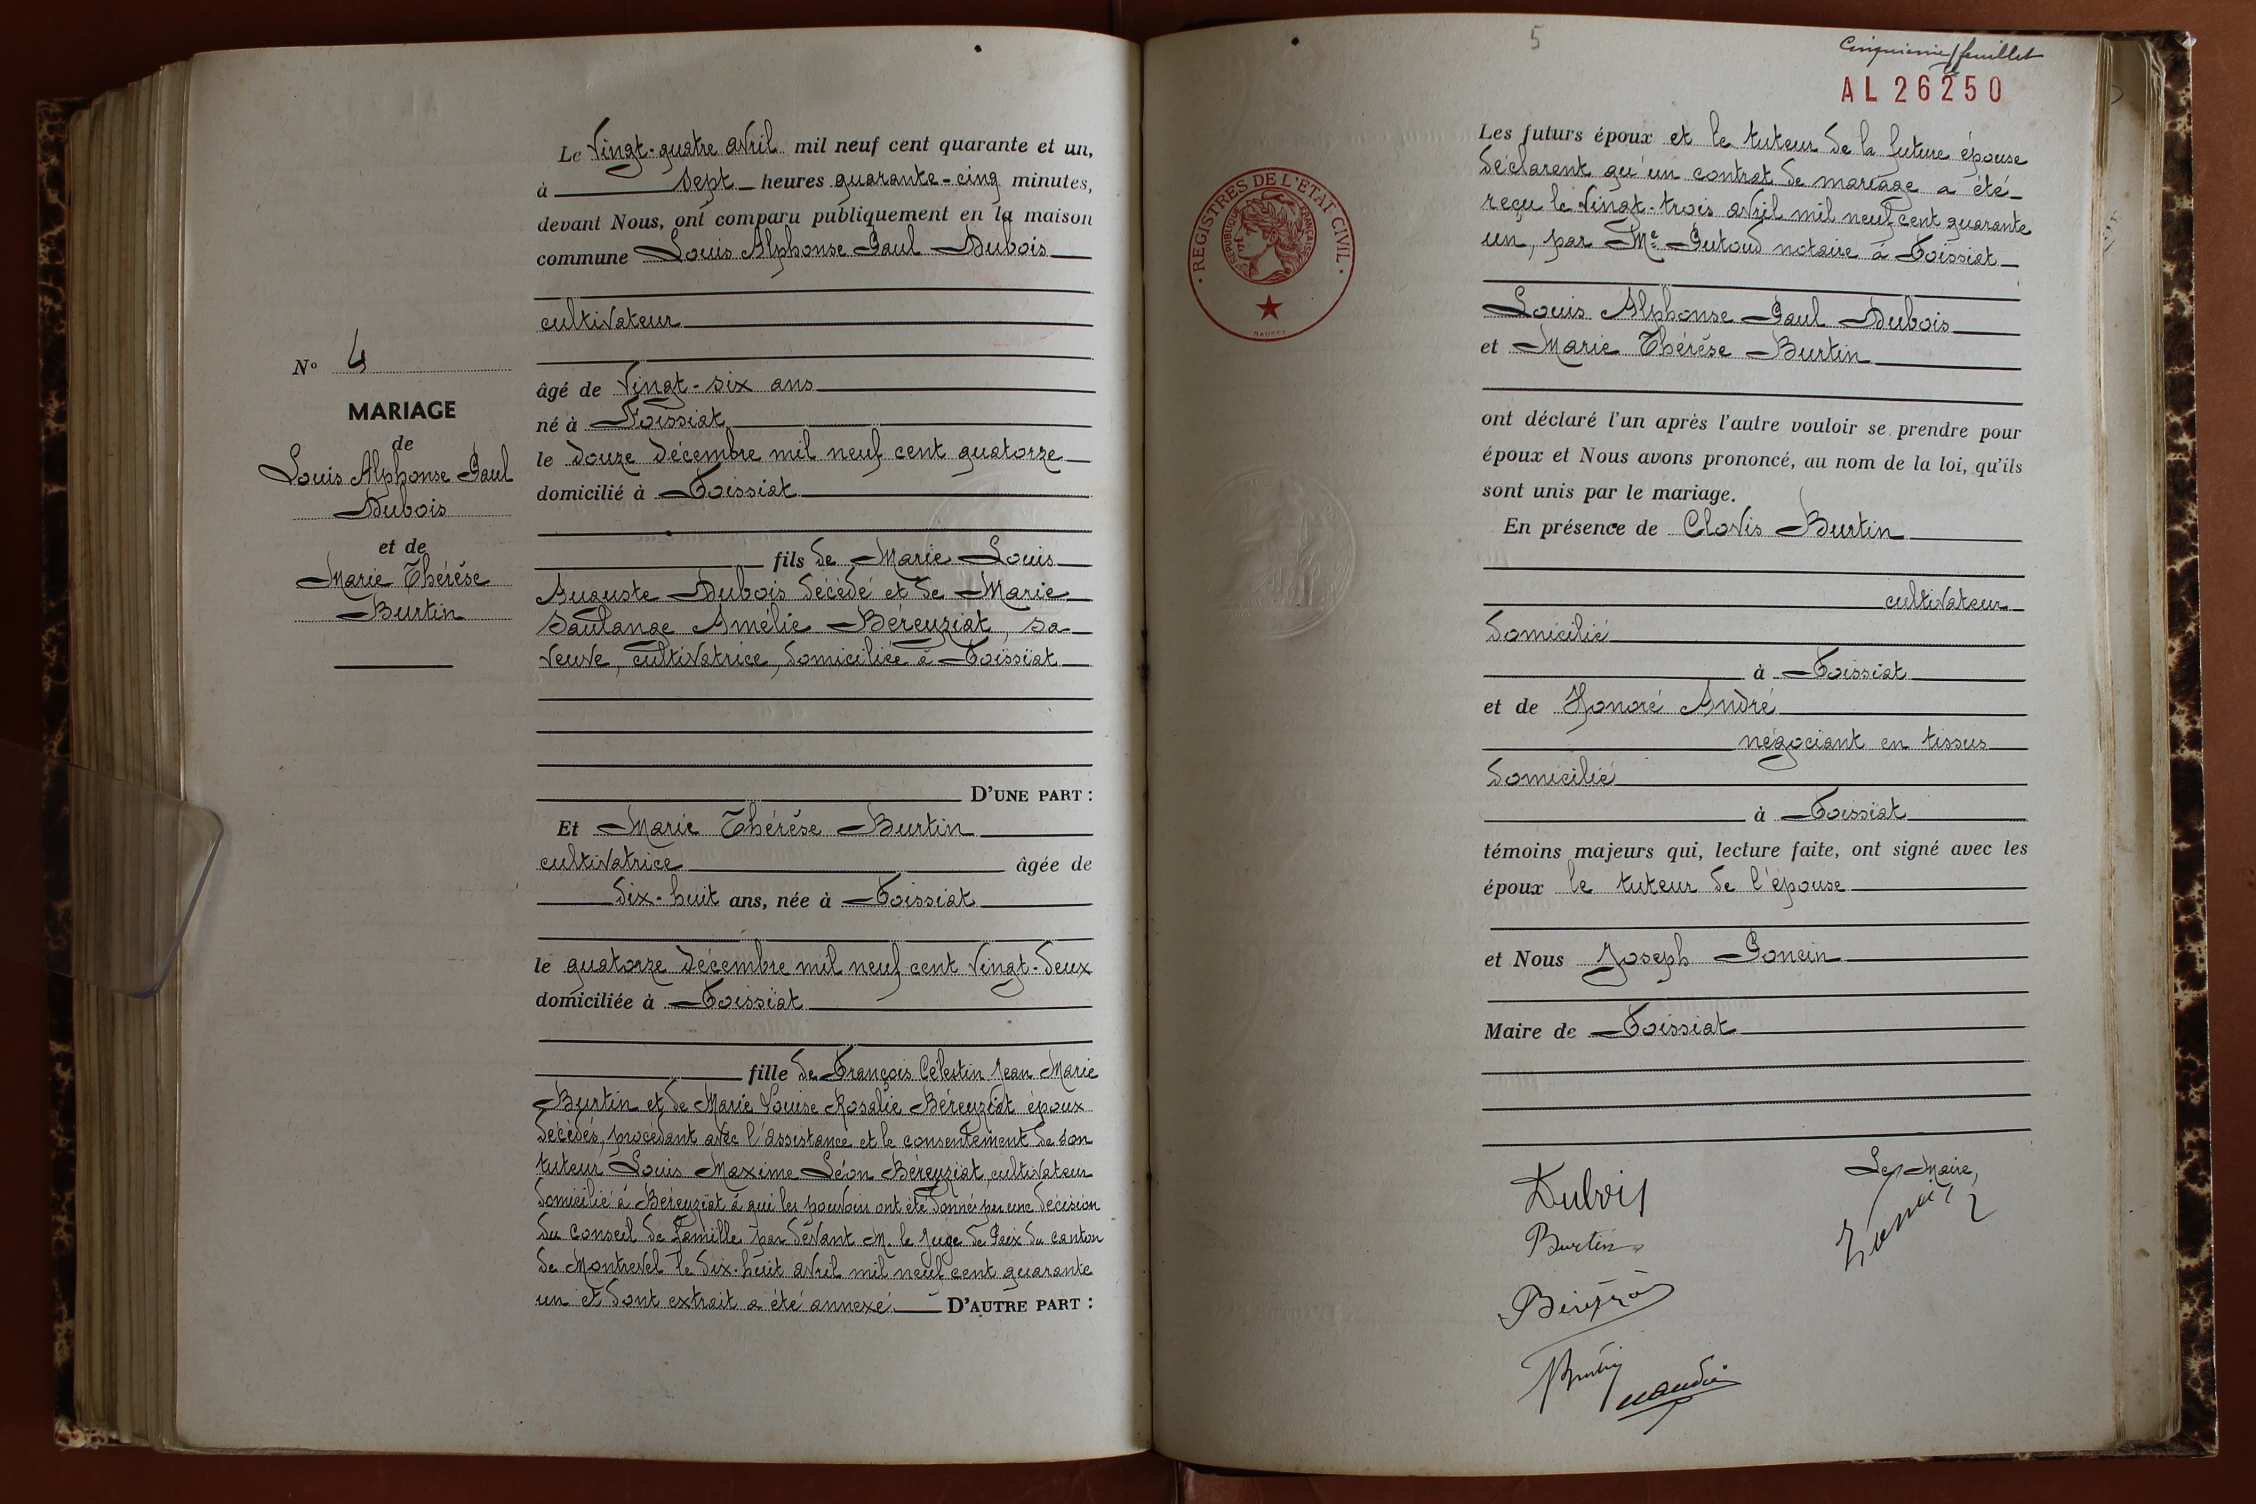 Le vingt-quatre avril mil neuf cent quarante et un,
à sept heures quarante-cinq minutes,
devant Nous, ont comparu publiquement en la maison
commune Louis Alphonse Paul Dubois
cultivateur
âgé de vingt-six ans
né à Foissiat
le douze décembre mil neuf cent quatorze
domicilié à Foissiat
fils de Marie Louis
Auguste Dubois décédé et de Marie
Saulange Amélie Béreyziat, sa
veuve, cultivatrice, domiciliée à Foissiat
D'UNE PART :
N° 4
MARIAGE
de
Louis Alphonse Paul
Dubois
et de
Marie Thérèse
Burtin
Et Marie Thérèse Burtin
cultivatrice âgée de
dix-huit ans, née à Foissiat
le quatorze décembre mil neuf cent vingt-deux
domiciliée à Foissiat
fille de François Célestin Jean Marie
Burtin et de Marie Louise Rosalie Béreyziat époux
décédés, procédant avec l'assistance et le consentement de son
tuteur Louis Maxime Léon Béreyziat, cultivateur
domicilié à Béreyziat à qui les pouvoirs ont été donné par une décision
du conseil de famille par devant M. le Juge de Paix du canton
de Montrevel le dix-huit avril mil neuf cent quarante
un et dont extrait a été annexé. D'AUTRE PART :
5
Cinquième feuillet
AL 26250
REGISTRES DE L'ÉTAT CIVIL
RÉPUBLIQUE FRANÇAISE
Les futurs époux et le tuteur de la future épouse
déclarent qu'un contrat de mariage a été
reçu le vingt-trois avril mil neuf cent quarante
un, par Me Putoud notaire à Foissiat
Louis Alphonse Paul Dubois
et Marie Thérèse Burtin
ont déclaré l'un après l'autre vouloir se prendre pour
époux et Nous avons prononcé, au nom de la loi, qu'ils
sont unis par le mariage.
En présence de Clovis Burtin
cultivateur
domicilié
à Foissiat
et de Honoré André
négociant en tissus
domicilié
à Foissiat
témoins majeurs qui, lecture faite, ont signé avec les
époux le tuteur de l'épouse
et Nous Joseph Poncin
Maire de Foissiat
Le Maire,
Dubois
Burtin